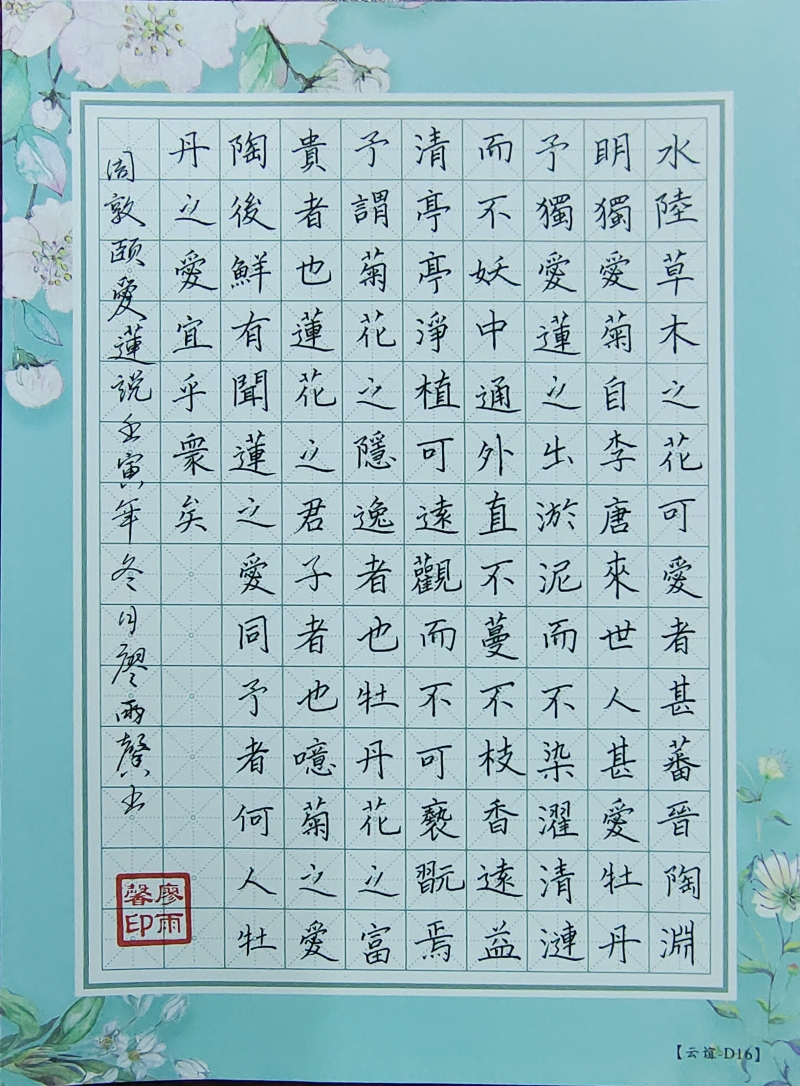 水陸草木之花可愛者甚蕃晉陶淵
明獨愛菊自李唐來世人甚愛牡丹
予獨愛蓮之出淤泥而不染濯清漣
而不妖中通外直不蔓不枝香遠益
清亭亭淨植可遠觀而不可褻翫焉
予謂菊花之隱逸者也牡丹花之富
貴者也蓮花之君子者也噫菊之愛
陶後鮮有聞蓮之愛同予者何人牡
丹之愛宜乎衆矣
周敦頤愛蓮説壬寅年冬月廖雨馨书
廖雨
馨印
【云谊-D16】